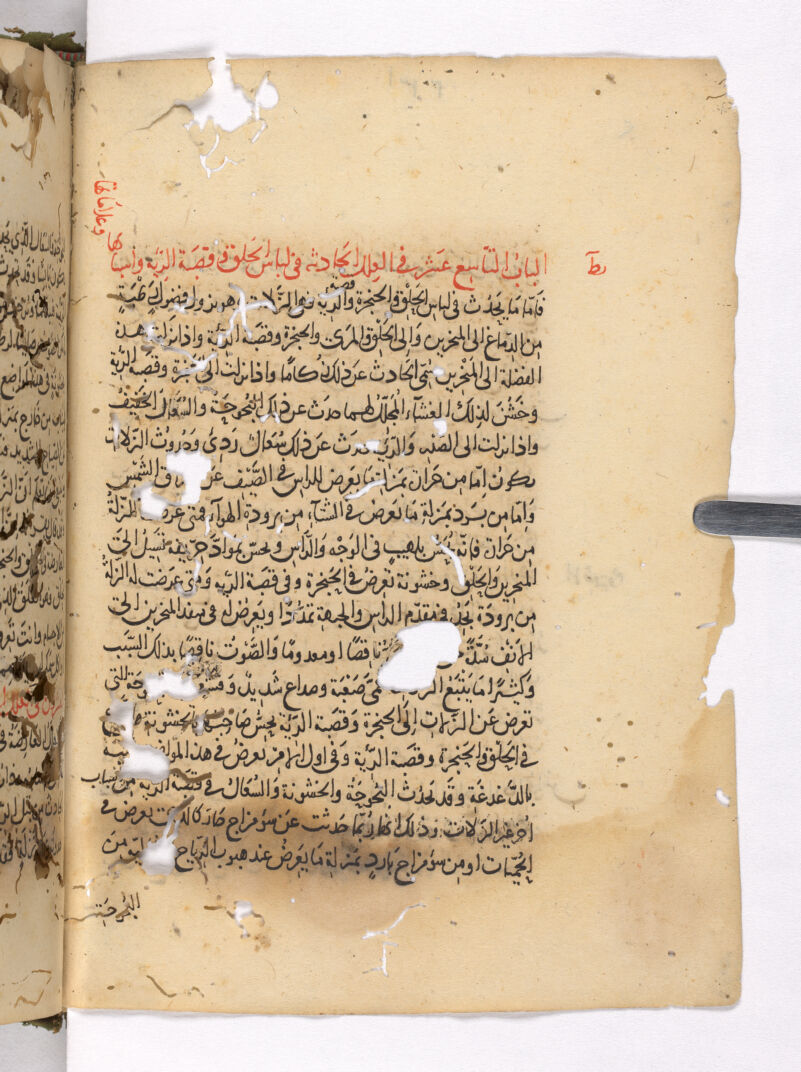 وعلاماتها
الباب التاسع عشر في العلل الحادثة في لباس الحلق وقصبة الرية وأسبابها
فاما ما يحدث في لباس الحلق والحنجرة والرئة فهو النزلات وهو نزول فضول رطبة
من الدماغ الى المنخرين والى الحلق والمرئ والحنجرة وقصبة الرئة واذا نزلت هذه
الفضلة الى المنخرين سمى الحادث عن ذلك زكاما واذا نزلت الى الحنجرة وقصبة الرية
وخشن لذلك الغشاء المجلل لهما حدث عن ذلك البحوحة والسعال الخفيف
واذا نزلت الى الصدر والرئة حدث عن ذلك سعال ردى وحدوث النزلات
يكون اما من حرارة بمنزلة ما يعرض للراس في الصيف عن الشمس
واما من برد بمنزلة ما يعرض في الشتاء من برودة الهواء فمتى عرضت النزلة
من حرارة فانه يحس بلهيب في الوجه والراس ويحس بمواد حريفة تسيل الى
المنخرين والحلق وخشونة تعرض في الحنجرة وفي قصبة الرية ومتى عرضت له النزلة
من برودة يجد في مقدم الراس والجبهة تمددا ويعرض له في منفذ المنخرين الى
الانف سدة ناقصا او معدوما والصوت ناقصا بذلك السبب
وكثيرا ما يتبع حمى صعبة وصداع شديد التي
تعرض عن النزلات الى الحنجرة وقصبة الرية يحس صاحبها بالخشونة
في الحلق والحنجرة وقصبة الرية وفي اول الامر تعرض في هذا
بالدغدغة وقد تحدث البحوحة والخشونة والسعال في قصبة الرية من اسباب
اخر غير النزلات وذلك انها ربما حدثت عن سوء مزاج حار كالذي يعرض في
الحميات او من سوء مزاج بارد بمنزلة ما يعرض عند هبوب الرياح من